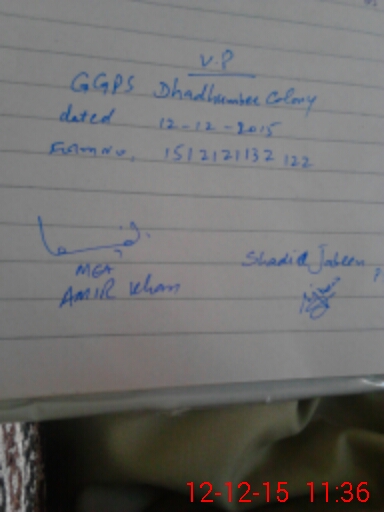 V.P
GGPS Dhadhumber Colony
dated 12-12-2015
Form No. 1512121132122
MEA
AMIR Khan
Shadia Jabeen
12-12-15 11:36